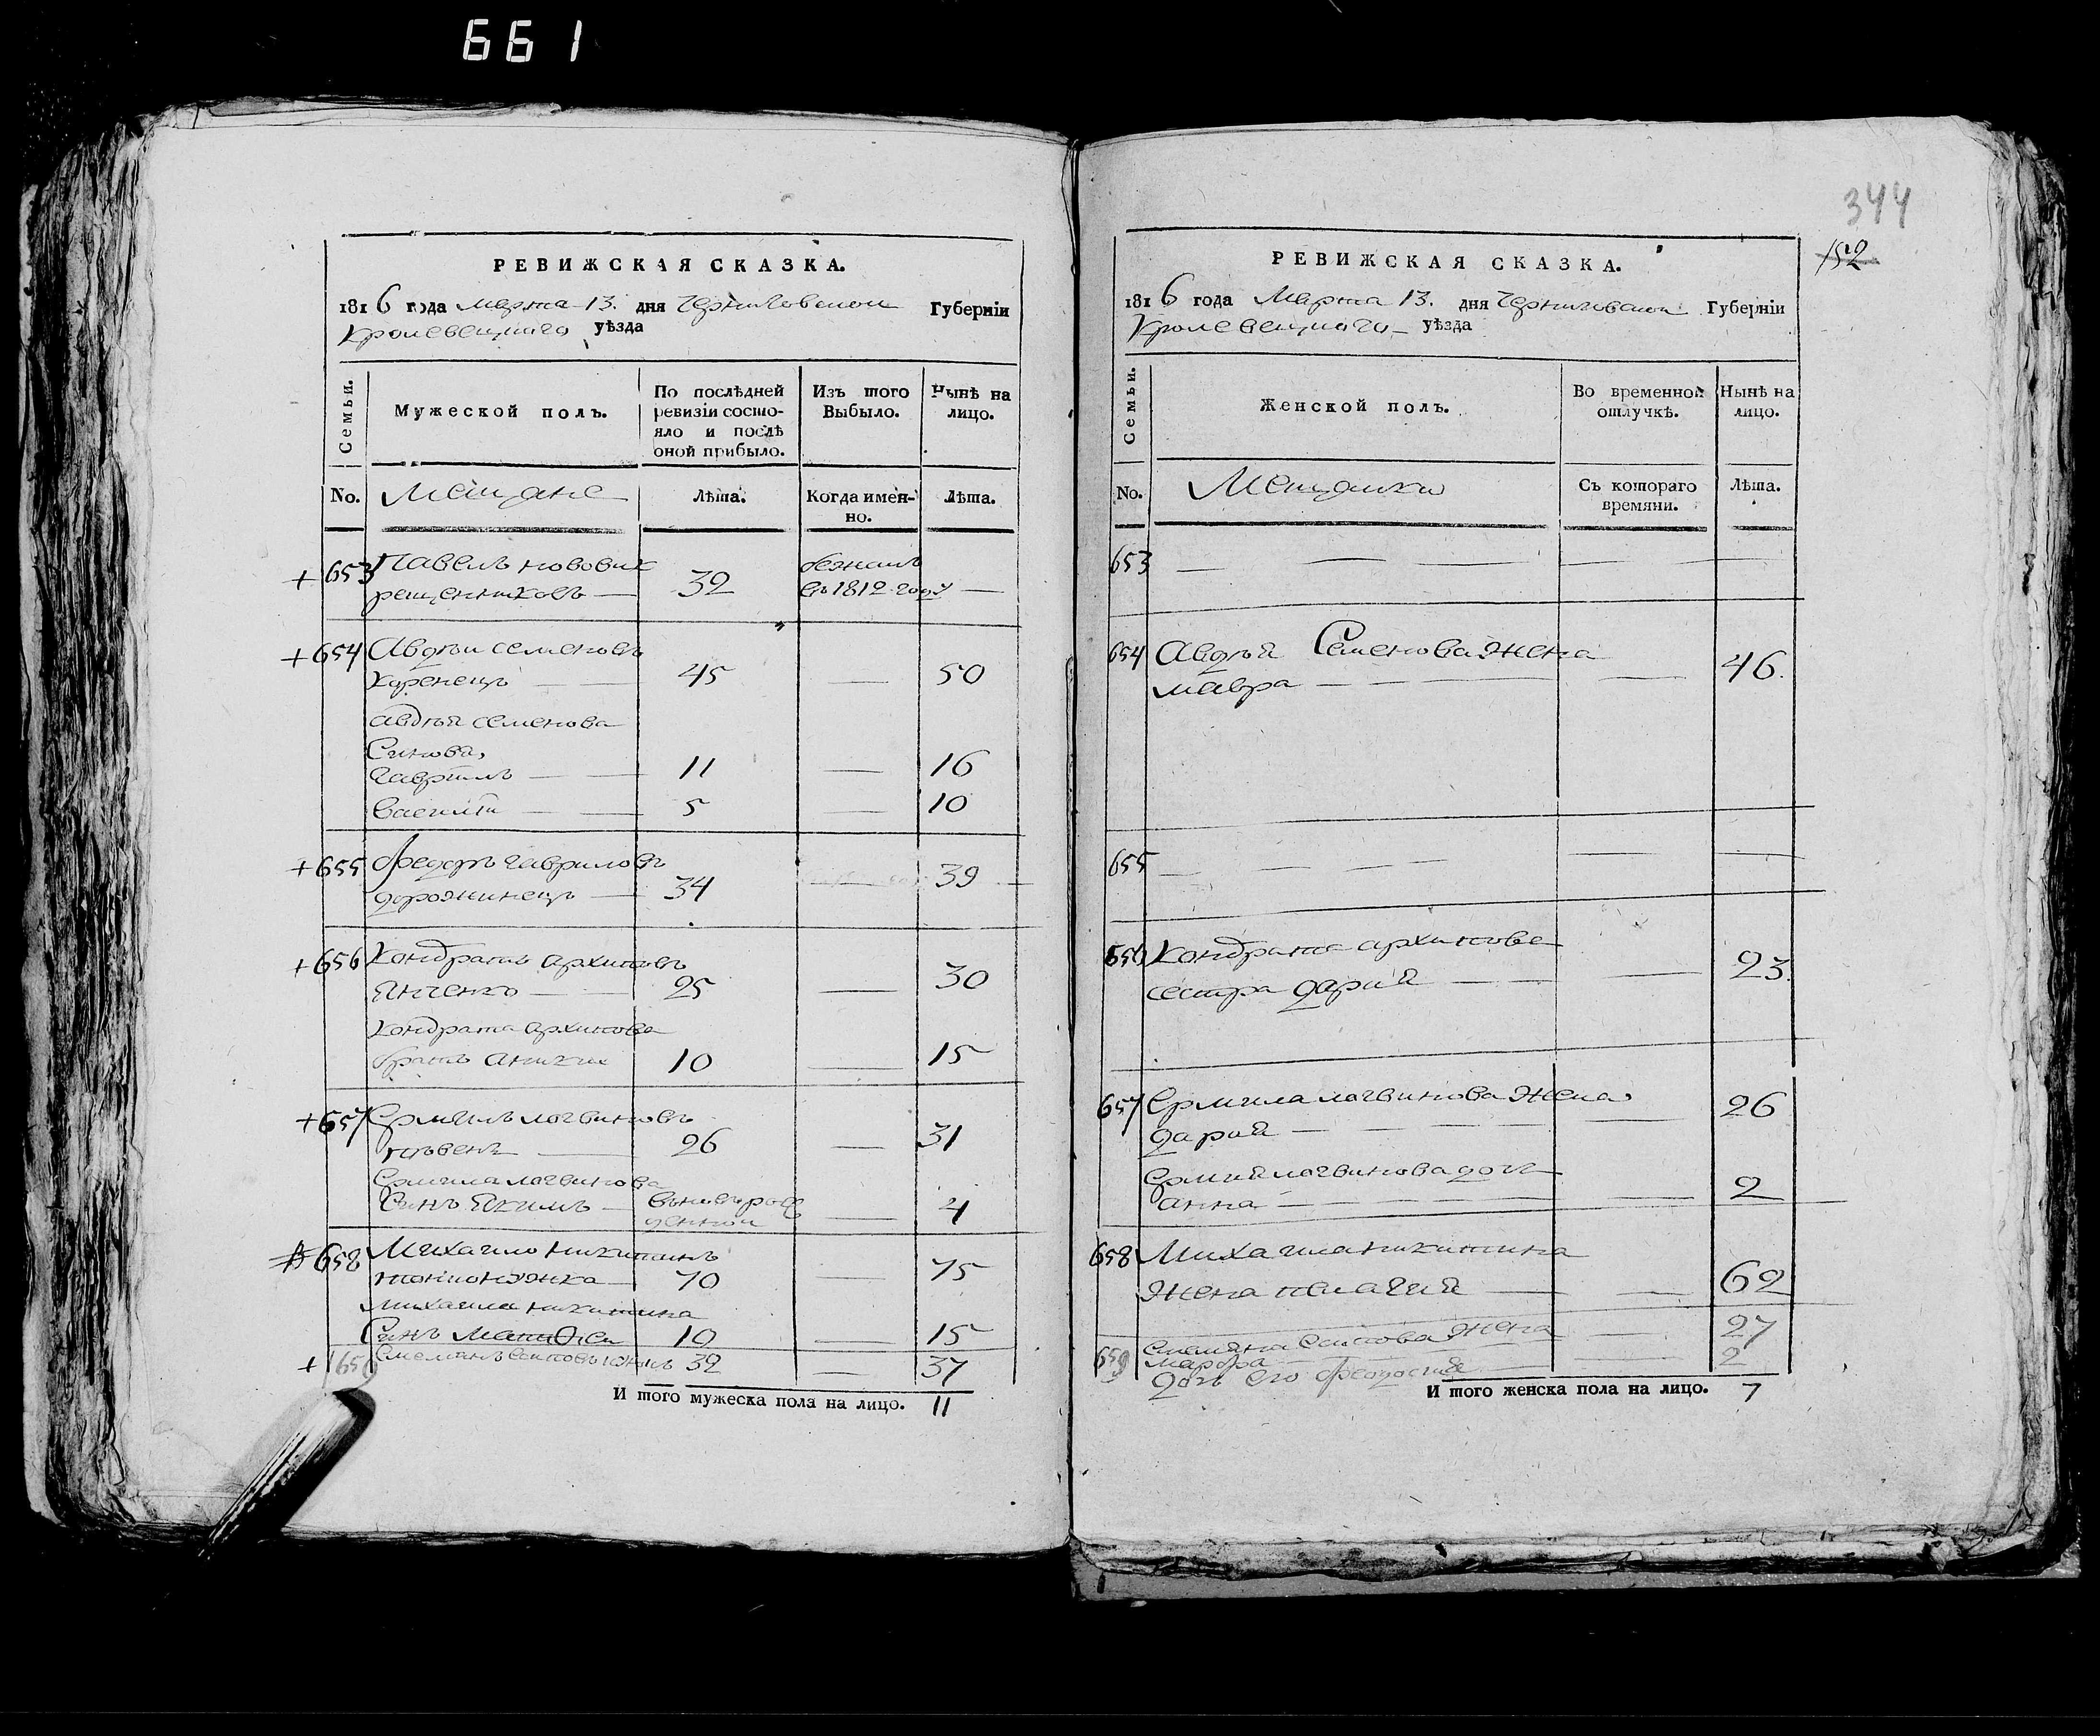 661
РЕВИЖСКАЯ СКАЗКА.
1816 года марта 13. дня Черниговской Губерніи
Кролевецкого уѣзда
Семьи.
Мужеской полъ.
По послѣдней ревизіи состояло и послѣ оной прибыло.
Изъ того Выбыло.
Нынѣ на лицо.
No.
Мещане
Лѣта.
Когда именно.
Лѣта.
+ 653 Павелъ новокрещенниковъ — 32 бежалъ въ 1812 году —
+ 654 Авдѣй семеновъ
Коренецъ — 45 — 50
авдѣя семенова
Синови,
гаврилъ — 11 — 16
василій — 5 — 10
+ 655 Федоръ гавриловъ
дорожинецъ — 34 — 39
+ 656 Кондратъ архиповъ
Янченко — 25 — 30
Кондрата архипова
братъ аникий 10 — 15
+ 657 Ермилъ логвиновъ
пѣвень — 26 — 31
Ермила логвинова
Синъ Якимъ — вновьрожденной — 4
658 Михайло никитинъ
70 — 75
михаила никитина
Синъ 10 — 15
+ 659 32 — 37
И того мужеска пола на лицо. 11
344
152
РЕВИЖСКАЯ СКАЗКА.
1816 года Марта 13. дня Черниговской Губерніи
Кролевецкого уѣзда
Семьи.
Женской полъ.
Во временной отлучкѣ.
Нынѣ на лицо.
No.
Мещанки
Съ котораго времяни.
Лѣта.
653 — — — — —
654 Авдѣя Семенова жена
мавра — — — — 46.
655 — — — — —
656 Кондрата архипова
сестра дария — — 23.
657 Ермила логвинова жена
дария — — — — 26
Ермила логвинова дочь
анна — — — 2
658 Михаила никитина
жена пелагия — — 62
659 жена — 27
марфа
дочь его феодосия — 2
И того женска пола на лицо. 7